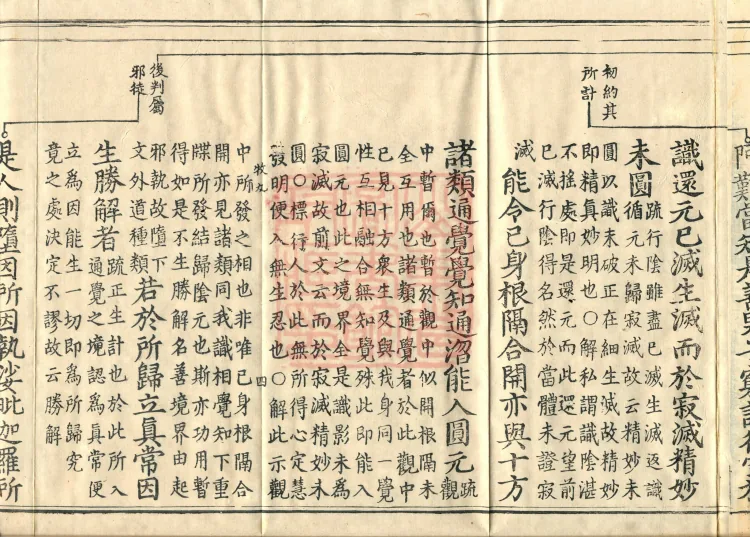 初約其
所計
識還元已滅生滅而於寂滅精妙
未圓疏行陰雖盡已滅生滅返識
循元未歸寂滅故云精妙未
圓以識未破正在細生滅故精妙
即精真妙明也○解私謂識陰湛
不搖處即是還元而此還元望前
已滅行陰得名然於當體未證寂
滅能令已身根隔合開亦與十方
諸類通覺覺知通㳷能入圓元疏觀
中暫爾也暫於觀中似開根隔未
全互用也諸類通覺者於此觀中
已見十方衆生及與我身同一覺
性互相融合無知覺殊此即能入
圓元也此之境界全是識影未爲
寂滅故前文云而於寂滅精妙未
圓○標行人於此無所得心定慧
發明便入無生忍也○解此示觀
牧九 四
中所發之相也非唯已身根隔合
開亦見諸類同我識相覺知下重
牒所發結歸陰元也斯亦功用暫
得如是不生勝解名善境界由起
邪執故墮下
文外道種類若於所歸立真常因
後判屬
邪徒
生勝解者疏正生計也於此所入
通覺之境認爲真常便
立爲因能生一切即爲所歸究
竟之處決定不謬故云勝解
是人則墮因所因執娑毗迦羅所